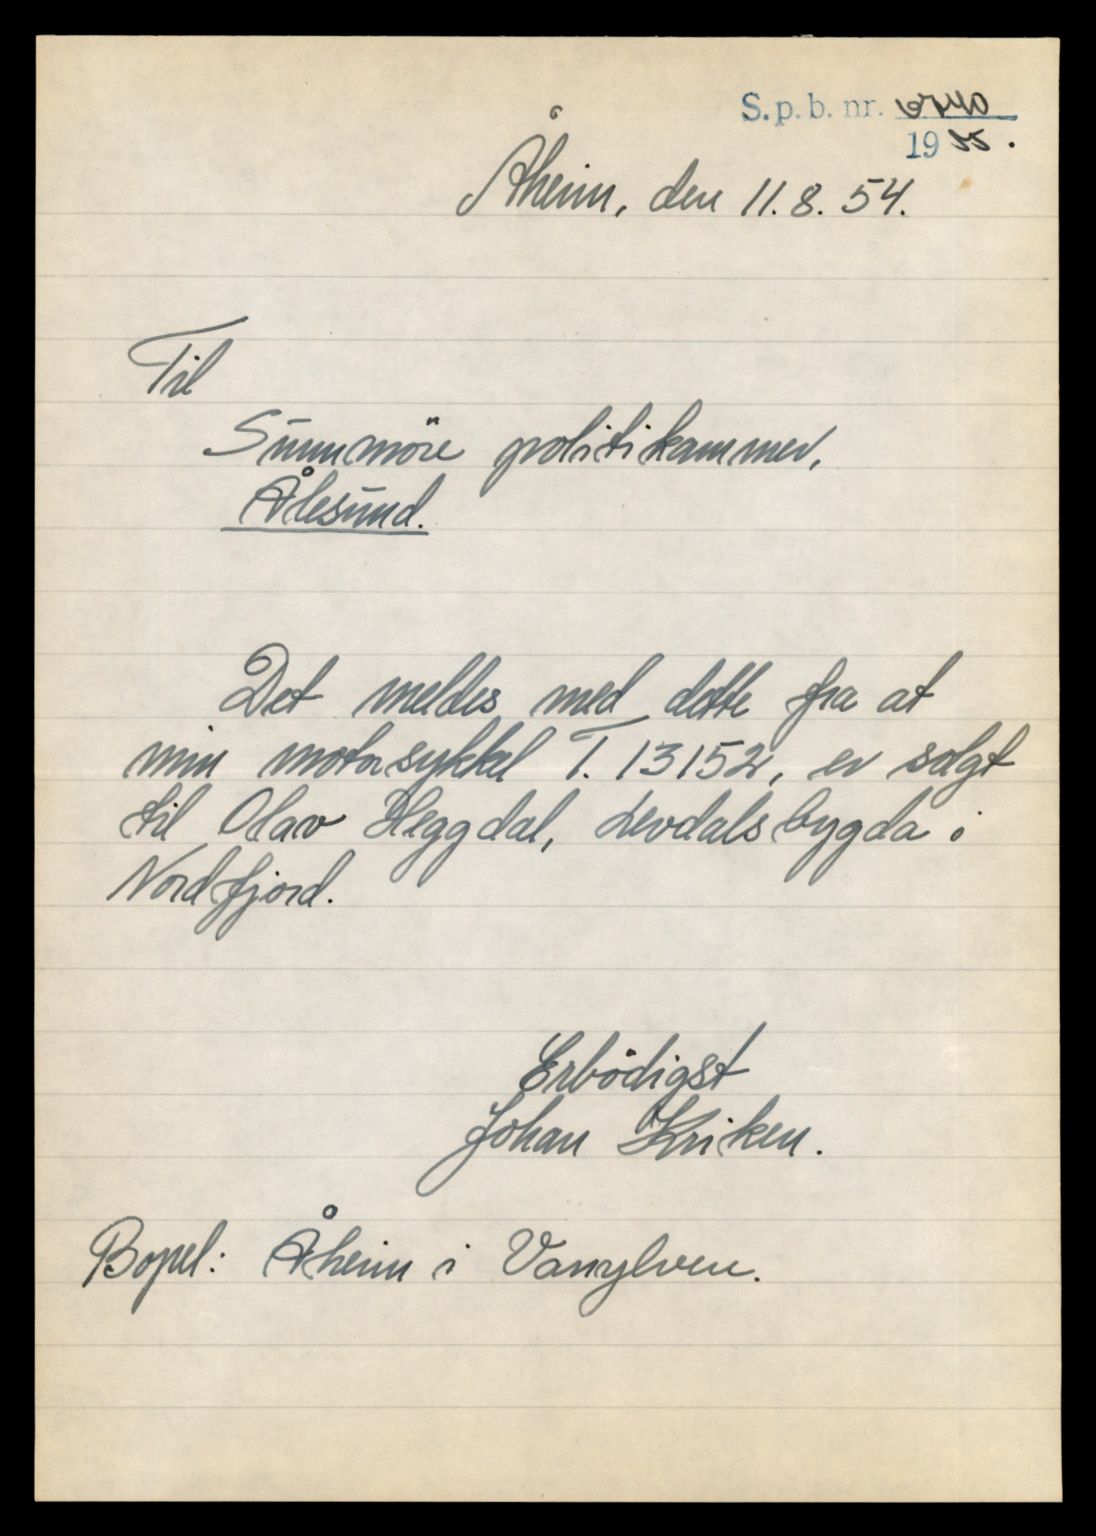 S.p.b. nr. 6740
1955.
Åheim, den 11.8.54.
Til
Sunnmöre politikammer,
Ålesund.
Det meldes med dette fra at
min motorsykkel T. 13152, er solgt
til Olav Heggdal, Levdalsbygda i
Nordfjord.
Erbödigst
Johan Kriken.
Bopel: Åheim i Vanylven.